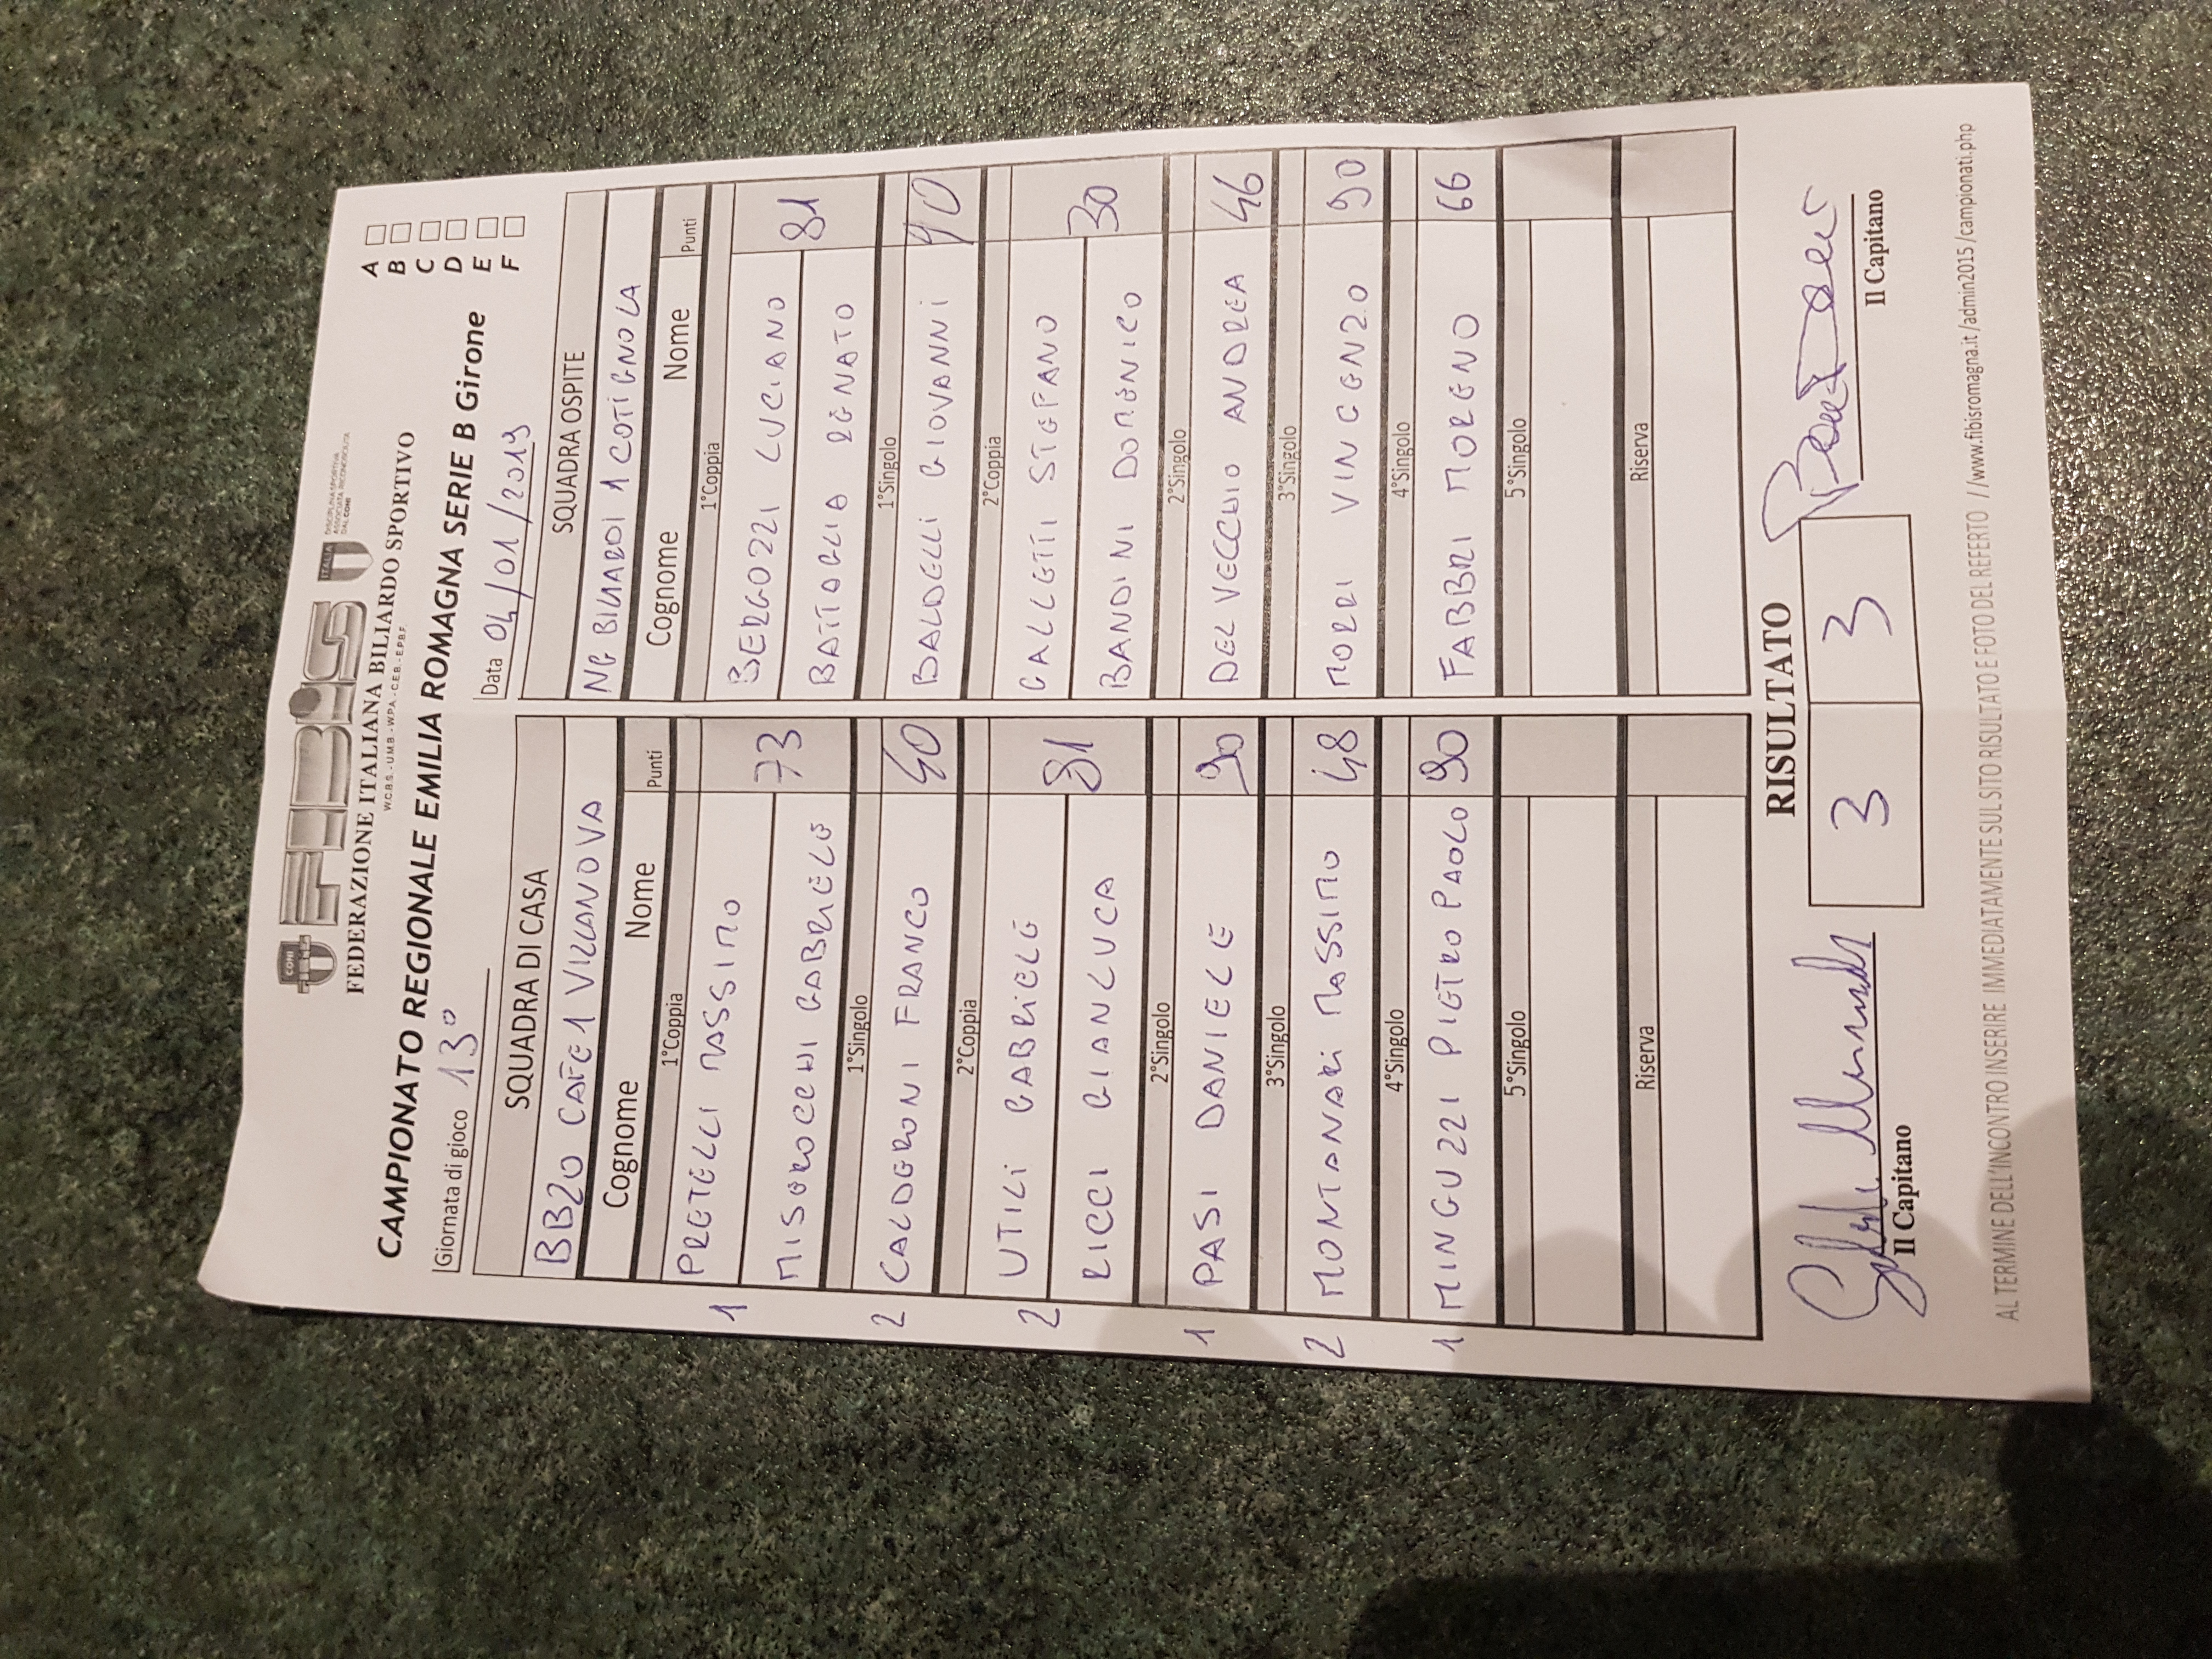 CONI
FIBiS
ITALIA
DISCIPLINA SPORTIVA
ASSOCIATA RICONOSCIUTA
DAL CONI
FEDERAZIONE ITALIANA BILIARDO SPORTIVO
W.C.B.S. - U.M.B. - W.P.A. - C.E.B. - E.P.B.F.
CAMPIONATO REGIONALE EMILIA ROMAGNA SERIE B Girone
A
B
C
D
E
F
Giornata di gioco 13°
Data 04/01/2019
SQUADRA DI CASA
BB20 CAFE 1 VILLANOVA
Cognome Nome Punti
1°Coppia
1 PRETELLI MASSIMO
MISEROCCHI GABRIELE 73
1°Singolo
2 CALDERONI FRANCO 40
2°Coppia
2 UTILI GABRIELE
RICCI GIANLUCA 81
2°Singolo
1 PASI DANIELE 90
3°Singolo
2 MONTANARI MASSIMO 48
4°Singolo
1 MINGUZZI PIETRO PAOLO 90
5°Singolo
Riserva
SQUADRA OSPITE
NG BILIARDI 1 COTIGNOLA
Cognome Nome Punti
1°Coppia
BERGOZZI LUCIANO
BATTAGLIA RENATO 81
1°Singolo
BALDELLI GIOVANNI 90
2°Coppia
GALLETTI STEFANO
BANDINI DOMENICO 30
2°Singolo
DEL VECCHIO ANDREA 46
3°Singolo
MORRI VINCENZO 90
4°Singolo
FABBRI MORENO 66
5°Singolo
Riserva
RISULTATO
3 3
Il Capitano
Il Capitano
AL TERMINE DELL'INCONTRO INSERIRE IMMEDIATAMENTE SUL SITO RISULTATO E FOTO DEL REFERTO //www.fibisromagna.it/admin2015/campionati.php